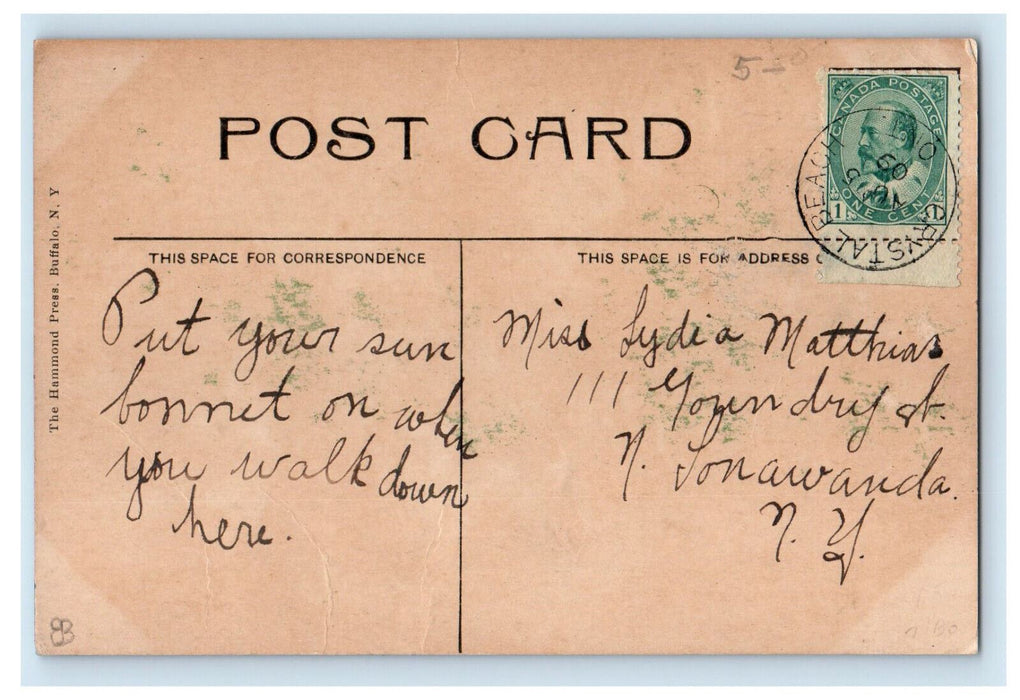 5-0
POST CARD
CANADA POSTAGE
ONE CENT
1 1
CRYSTAL BEACH ONT
09
The Hammond Press, Buffalo, N. Y
THIS SPACE FOR CORRESPONDENCE
THIS SPACE IS FOR ADDRESS O
Put your sun
bonnet on when
you walk down
here.
Miss Lydia Matthias
111 Goundry St.
N. Tonawanda.
N. Y.